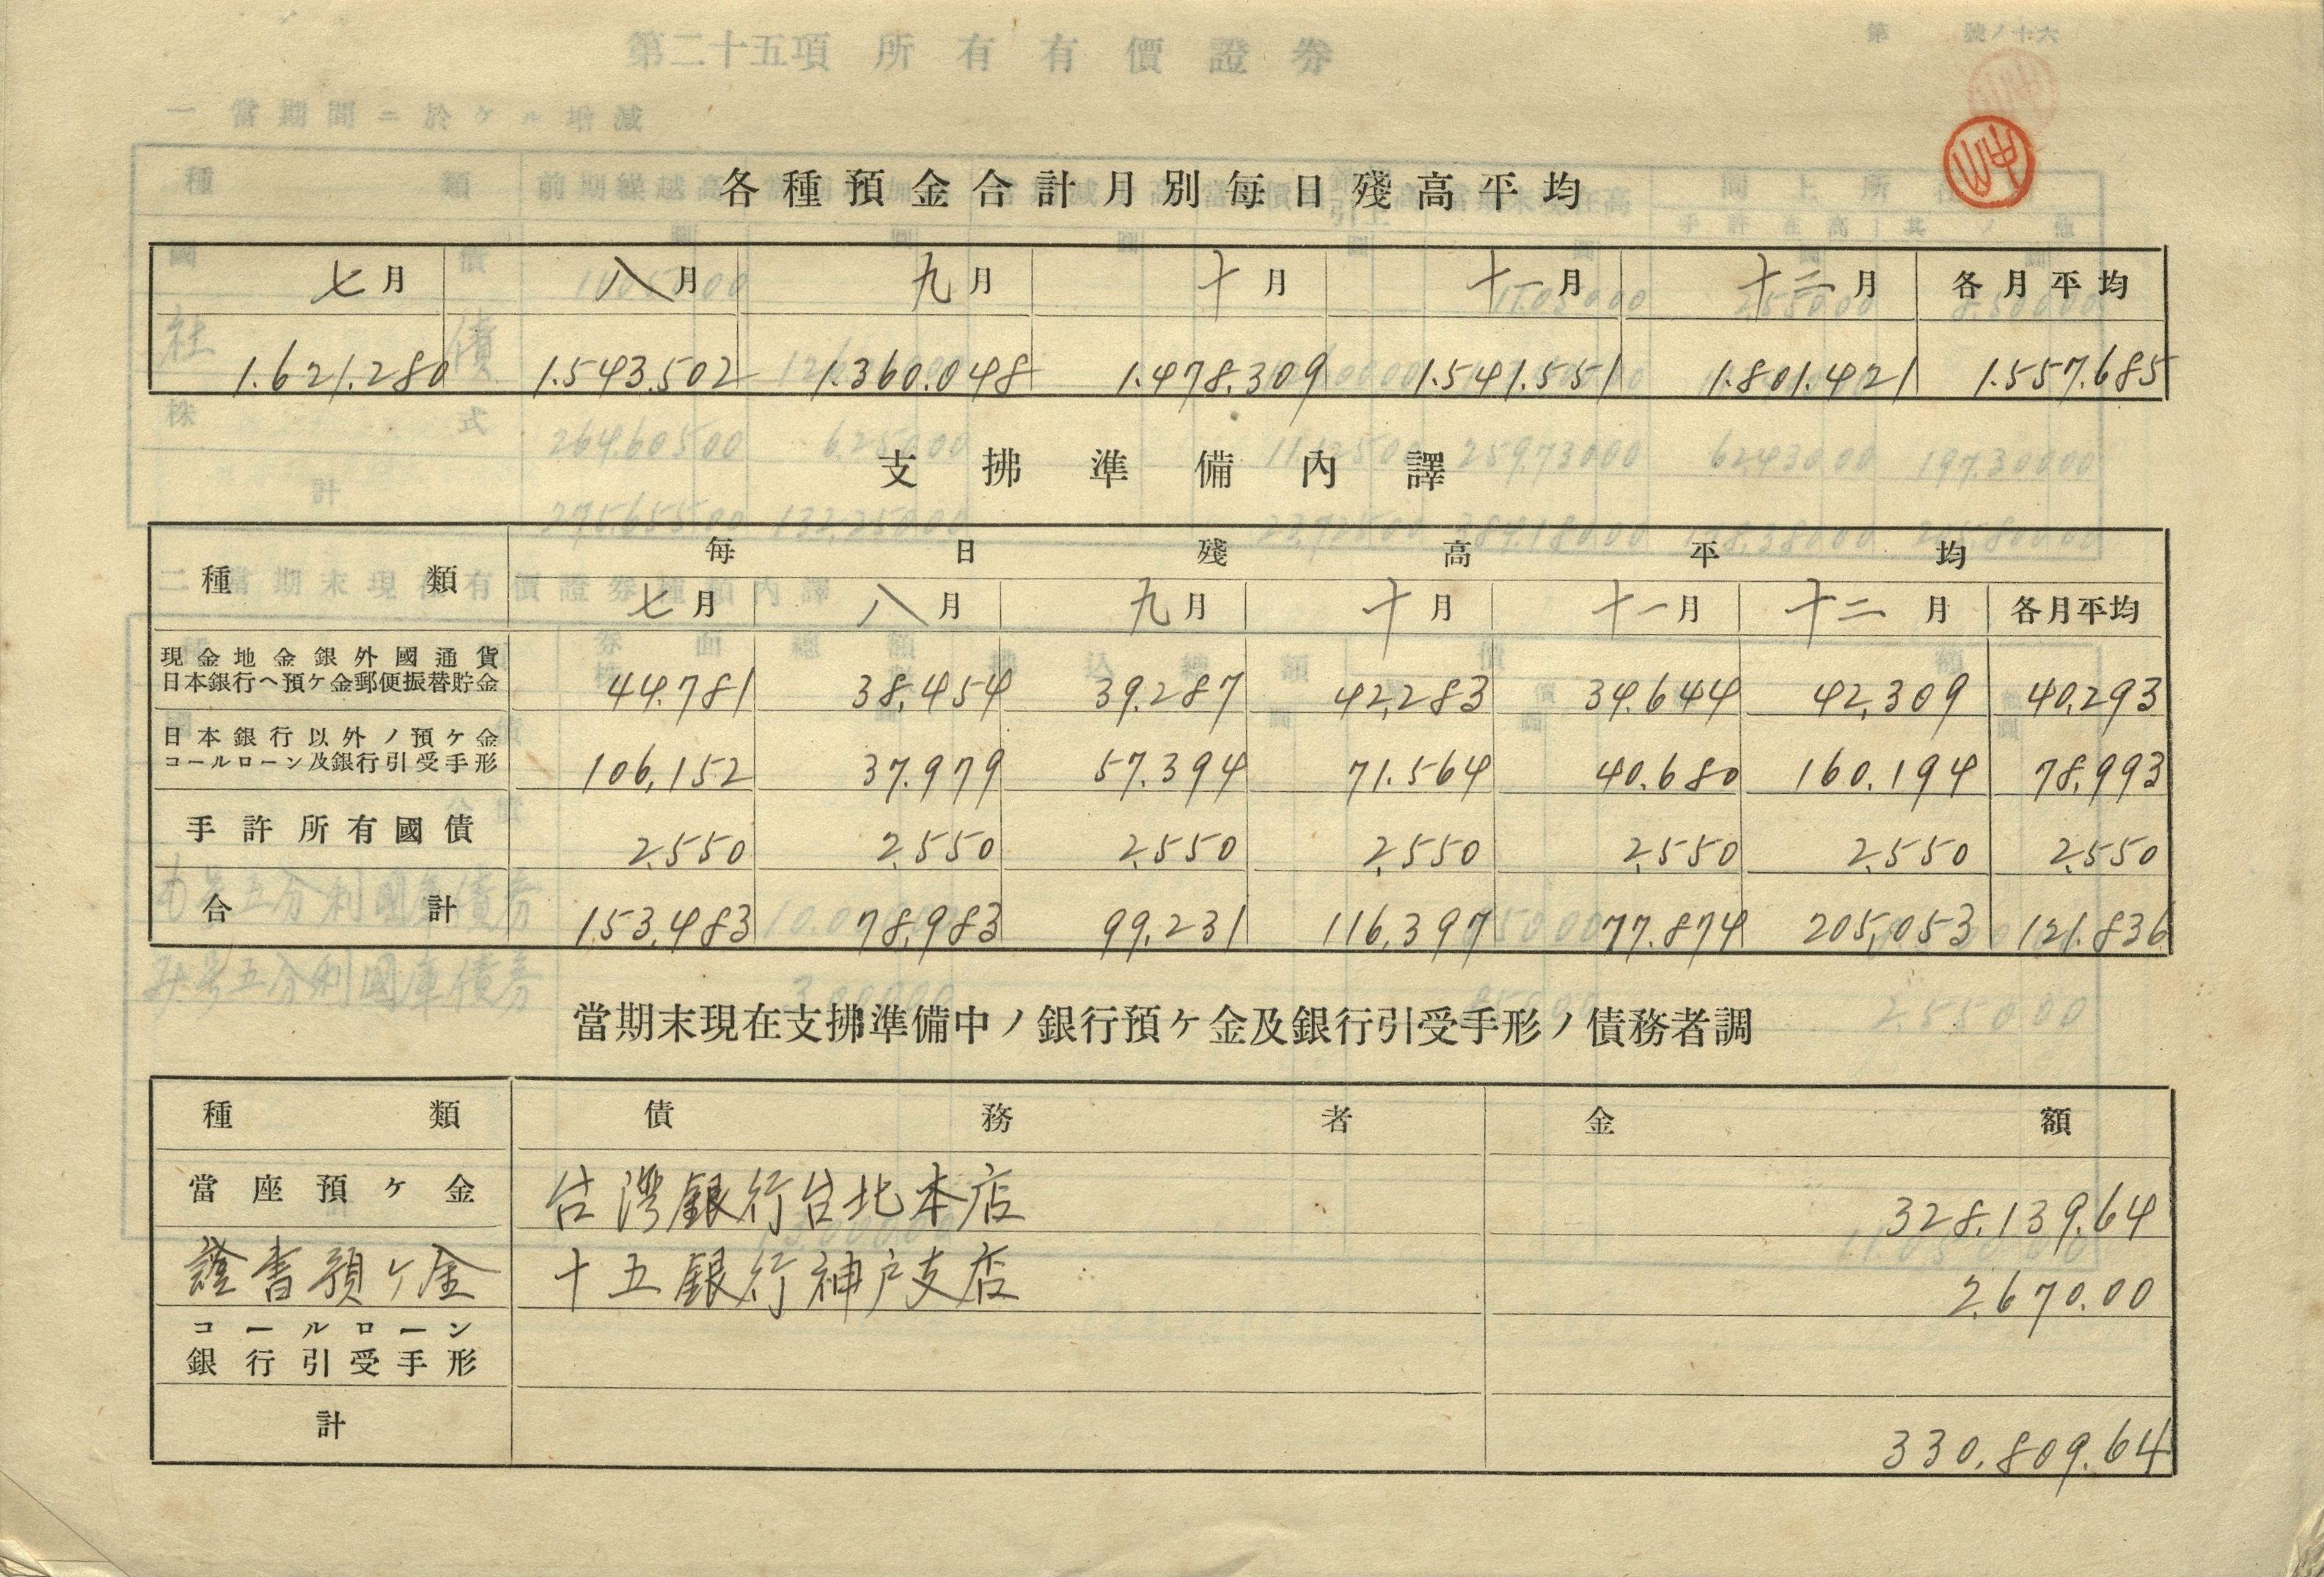 各種預金合計月別每日殘高平均
七月 八月 九月 十月 十一月 十二月 各月平均
1.621.280 1.543.502 1.360.048 1.478.309 1.541.551 1.801.421 1.557.685
支拂準備內譯
種類 每日殘高平均
七月 八月 九月 十月 十一月 十二月 各月平均
現金地金銀外國通貨
日本銀行ヘ預ケ金郵便振替貯金 44.781 38.454 39.287 42,283 34.644 42,309 40,293
日本銀行以外ノ預ケ金
コールローン及銀行引受手形 106,152 37.979 57.394 71.564 40.680 160.194 78,993
手許所有國債 2.550 2.550 2.550 2,550 2.550 2.550 2.550
合計 153.483 78,983 99,231 116,397 77.874 205,053 121.836
當期末現在支拂準備中ノ銀行預ケ金及銀行引受手形ノ債務者調
種類 債務者 金額
當座預ケ金 台灣銀行台北本店 328.139.64
證書預ケ金 十五銀行神戸支店 2.670.00
コールローン
銀行引受手形
計 330.809.64